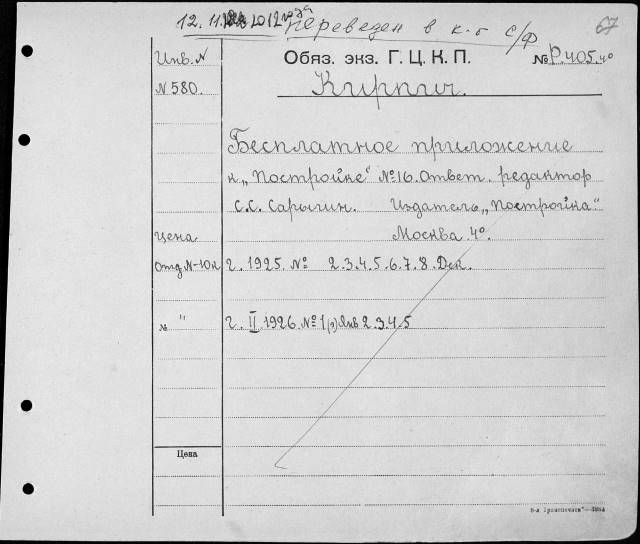 12.11. 2012 года переведен в к-г с/ф
67
Инв. N
Обяз. экз. Г. Ц. К. П.
№ Р.405.4º
N 580.
Кирпич.
Бесплатное приложение
к „Постройке" №16. Ответ. редактор
С.С. Сарыгин. Издатель „Постройка."
цена
Москва 4º.
отд. N-10к
г. 1925. № 2.3.4.5.6.7.8. Дек.
№ "
г. II. 1926. № 1(9) Янв 2.3.4.5
Цена